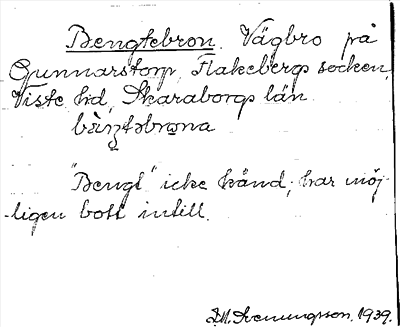 Bengtebron. Vägbro på
Gunnarstorp, Flakebergs socken,
Viste hd, Skaraborgs län.
"Bengt" icke känd, har möj-
ligen bott intill.
1939.